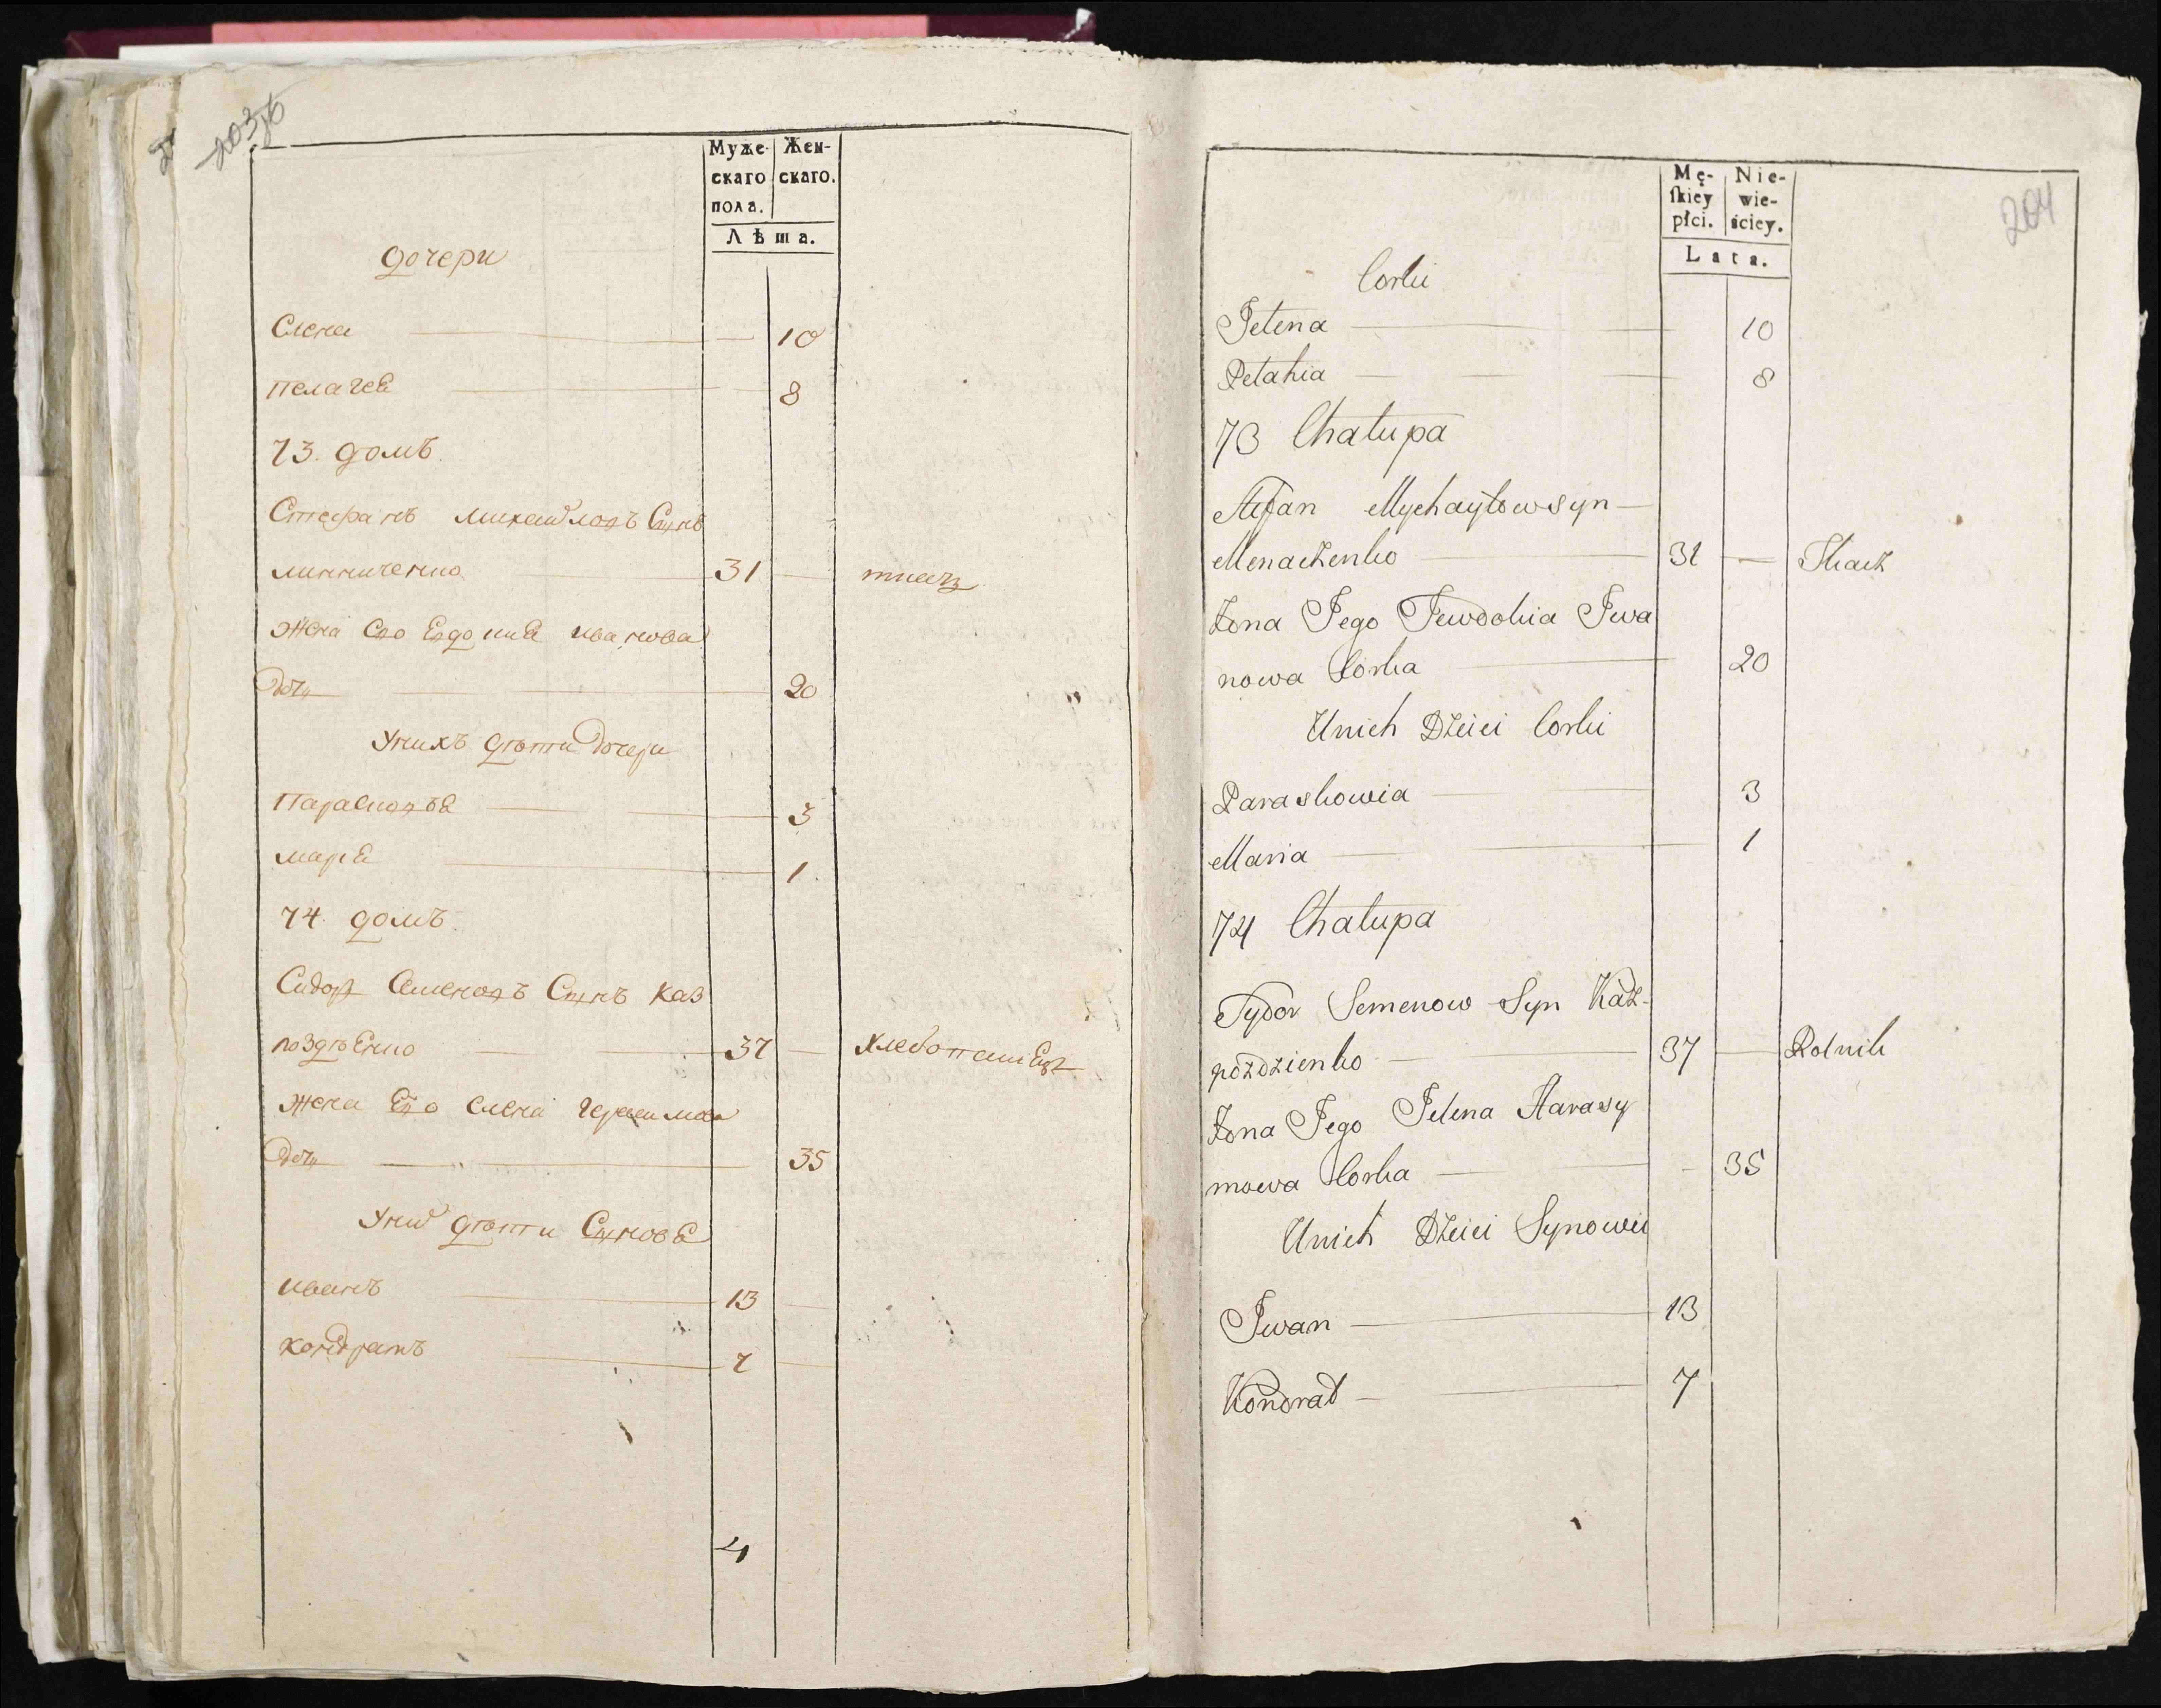 203 б
Муже-
скаго
пола.
Жен-
скаго.
Лѣта.
дочери
Єлена 10
пелагея 8
73. домъ.
Стефанъ михайловъ Сынъ
миниченко 31 — ткачъ
жена Єго Евдокия иванова
дочь 20
У нихъ дѣти дочери
Парасковѣя 3
мария 1
74. домъ.
Сидоръ Семеновъ Сынъ каз
поздѣенко 37 — хлебопашецъ
жена Его елена герасимова
дочь 35
У ни дѣти Сыновя
иванъ 13
кондратъ 7
4
204
Mę-
ſkiey
płci.
Nie-
wie-
ściey.
Lata.
Corki
Jelena 10
Pelahia 8
73 Chałupa
Stefan Mychayłow syn
Menaczenko 31 — Tkacz
Żona Jego Jewdokia Jwa
nowa Corka 20
Unich Dzieci Corki
Paraskowia 3
Maria 1
74 Chałupa
Sydor Semenow Syn Kaz-
pozdzienko 37 — Rolnik
Żona Jego Jelena Harasy
mowa Corka 35
Unich Dzieci Synowie
Jwan 13
Kondrat 7